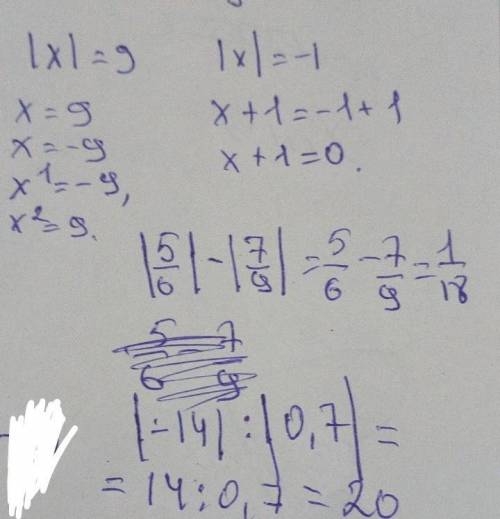 |x|=9
x=9
x=-9
x¹=-9,
x²=9.
|x|=-1
x+1=-1+1
x+1=0.
|5/6|-|7/9|=5/6-7/9=1/18
|-14|:|0,7|=
=14:0,7=20